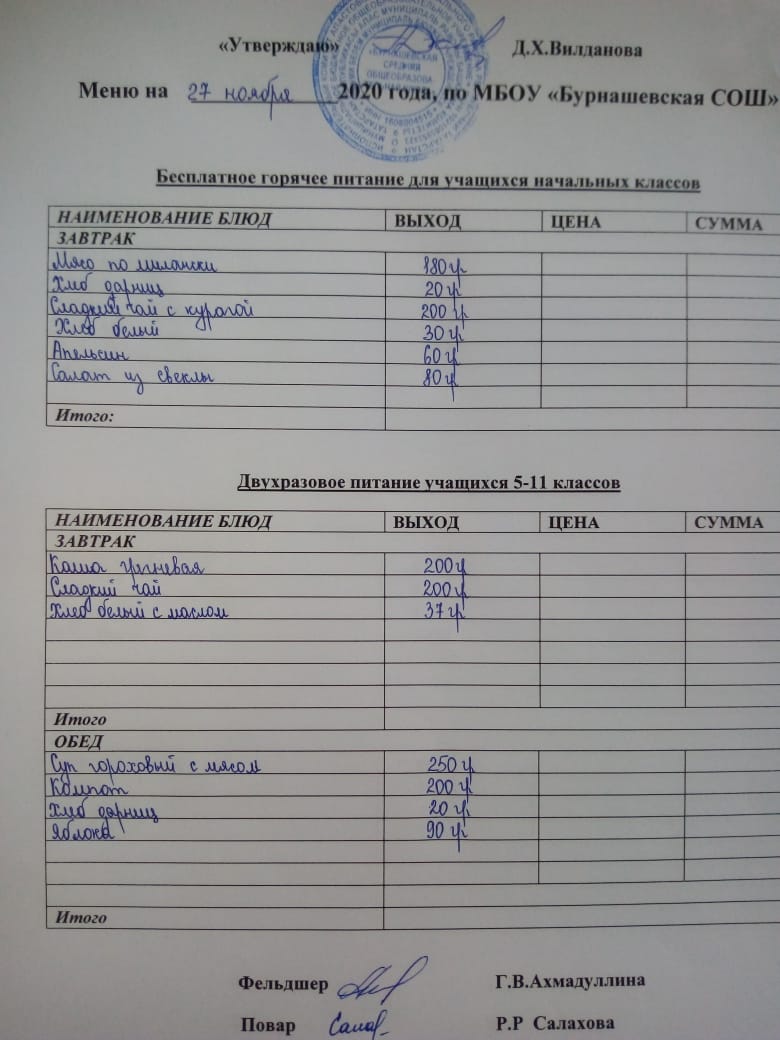 «Утверждаю» Д.Х.Вилданова
Меню на 27 ноября 2020 года, по МБОУ «Бурнашевская СОШ»
Бесплатное горячее питание для учащихся начальных классов
НАИМЕНОВАНИЕ БЛЮД ВЫХОД ЦЕНА СУММА
ЗАВТРАК
Мясо по милански 180 гр
Хлеб дарниц 20 гр
Сладкий чай с курагой 200 гр
Хлеб белый 30 гр
Апельсин 60 гр
Салат из свеклы 80 гр
Итого:
Двухразовое питание учащихся 5-11 классов
НАИМЕНОВАНИЕ БЛЮД ВЫХОД ЦЕНА СУММА
ЗАВТРАК
Каша 200 гр
Сладкий чай 200 гр
Хлеб белый с маслом 37 гр
Итого
ОБЕД
Суп гороховый с мясом 250 гр
Компот 200 гр
Хлеб дарниц 20 гр
Яблоко 90 гр
Итого
Фельдшер Г.В.Ахмадуллина
Повар Р.Р Салахова